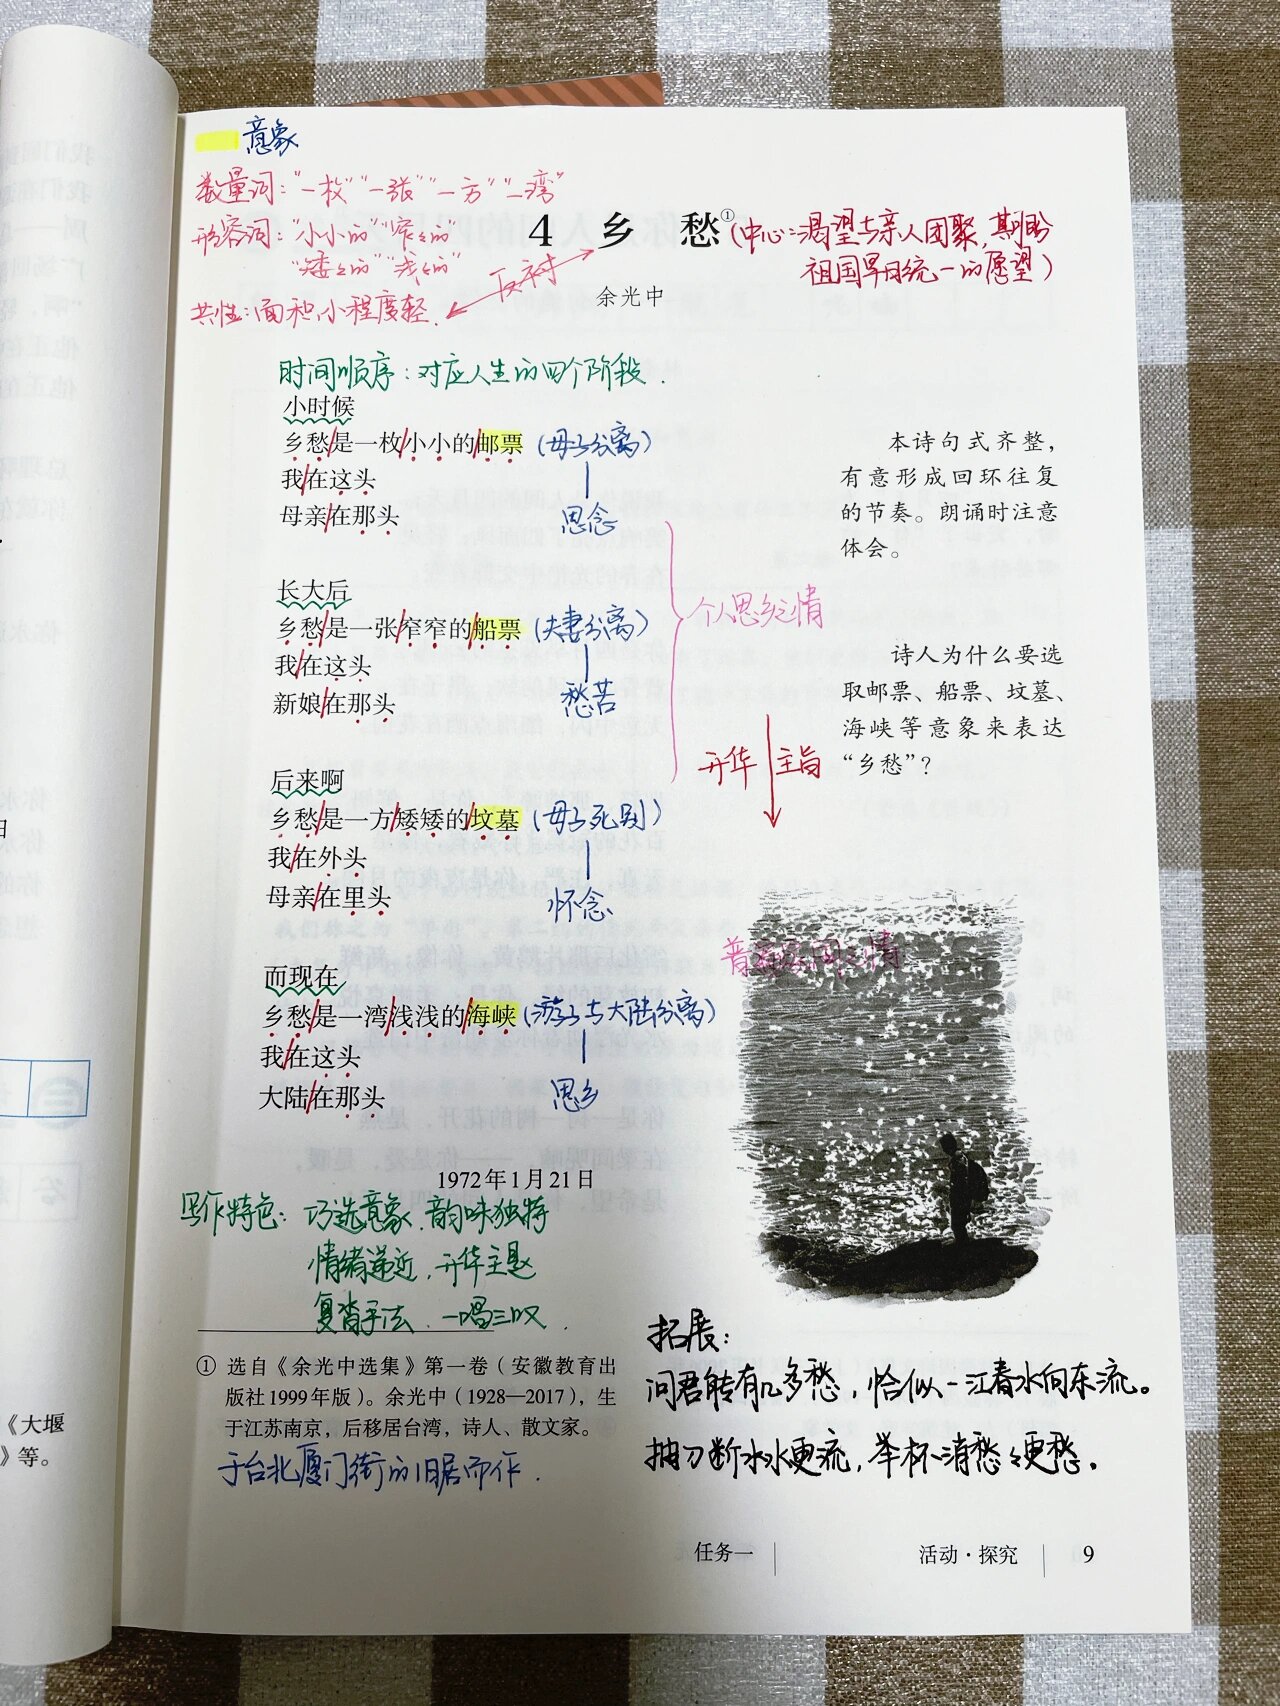 意象
数量词:“一枚”“一张”“一方”“一湾”
形容词:“小小的”“窄窄的”
“矮々的”“浅々的”
共性:面积小程度轻.
反衬
4 乡 愁①
(中心:渴望与亲人团聚,期盼
祖国早日统一的愿望)
余光中
时间顺序:对应人生的四个阶段.
小时候
乡愁/是一枚/小小的/邮票 (母子分离)
我/在这头
母亲/在那头
思念
长大后
乡愁/是一张/窄窄的/船票 (夫妻分离)
我/在这头
新娘/在那头
愁苦
后来啊
乡愁/是一方/矮矮的/坟墓 (母子死别)
我/在外头
母亲/在里头
怀念
而现在
乡愁/是一湾/浅浅的/海峡 (游子与大陆分离)
我/在这头
大陆/在那头
思乡
1972年1月21日
个人思乡之情
升华 主旨
之情
本诗句式齐整,
有意形成回环往复
的节奏。朗诵时注意
体会。
诗人为什么要选
取邮票、船票、坟墓、
海峡等意象来表达
“乡愁”?
写作特色:巧选意象.韵味独特
情绪递近.升华主题
复沓手法.一唱三叹.
① 选自《余光中选集》第一卷(安徽教育出
版社1999年版)。余光中(1928—2017),生
于江苏南京,后移居台湾,诗人、散文家。
于台北厦门街的旧居而作.
拓展:
问君能有几多愁,恰似一江春水向东流。
抽刀断水水更流,举杯消愁々更愁。
任务一
活动·探究
9
《大堰
》等。